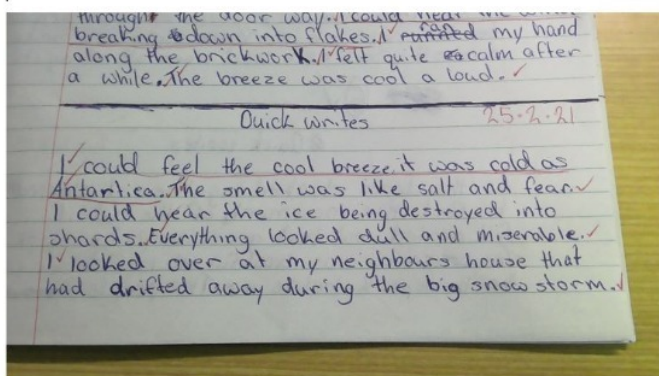 through the door way. I could hear the
breaking down into flakes. I ran my hand
along the brickwork. I felt quite calm after
a while. The breeze was cool a loud.
Quick writes
25.2.21
I could feel the cool breeze it was cold as
Antartica. The smell was like salt and fear.
I could hear the ice being destroyed into
shards. Everything looked dull and miserable.
I looked over at my neighbours house that
had drifted away during the big snow storm.